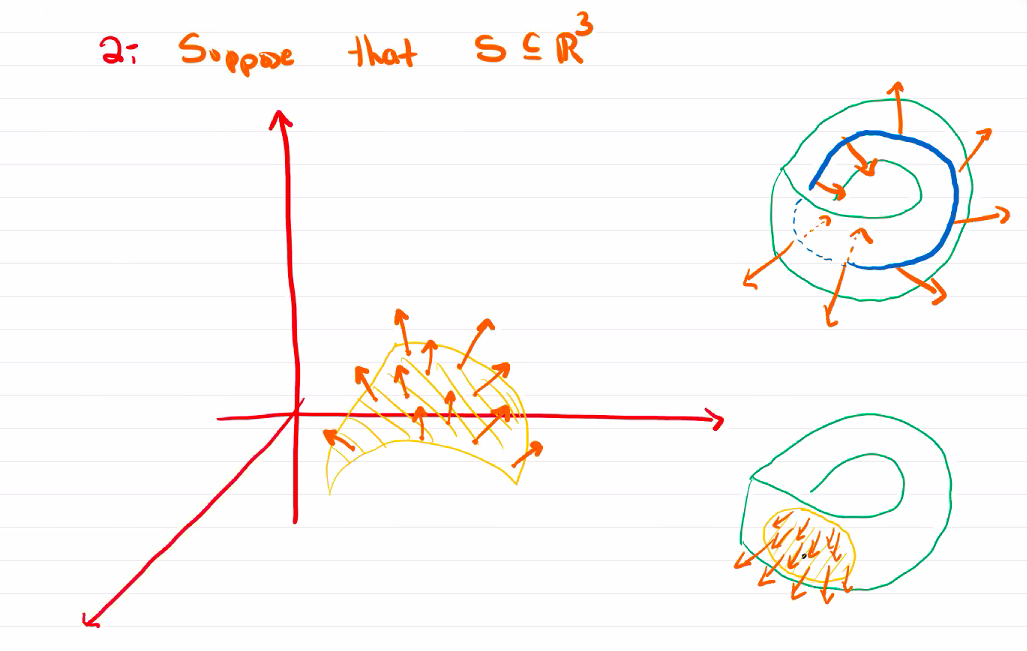 2: Suppose that S ⊆ ℝ³